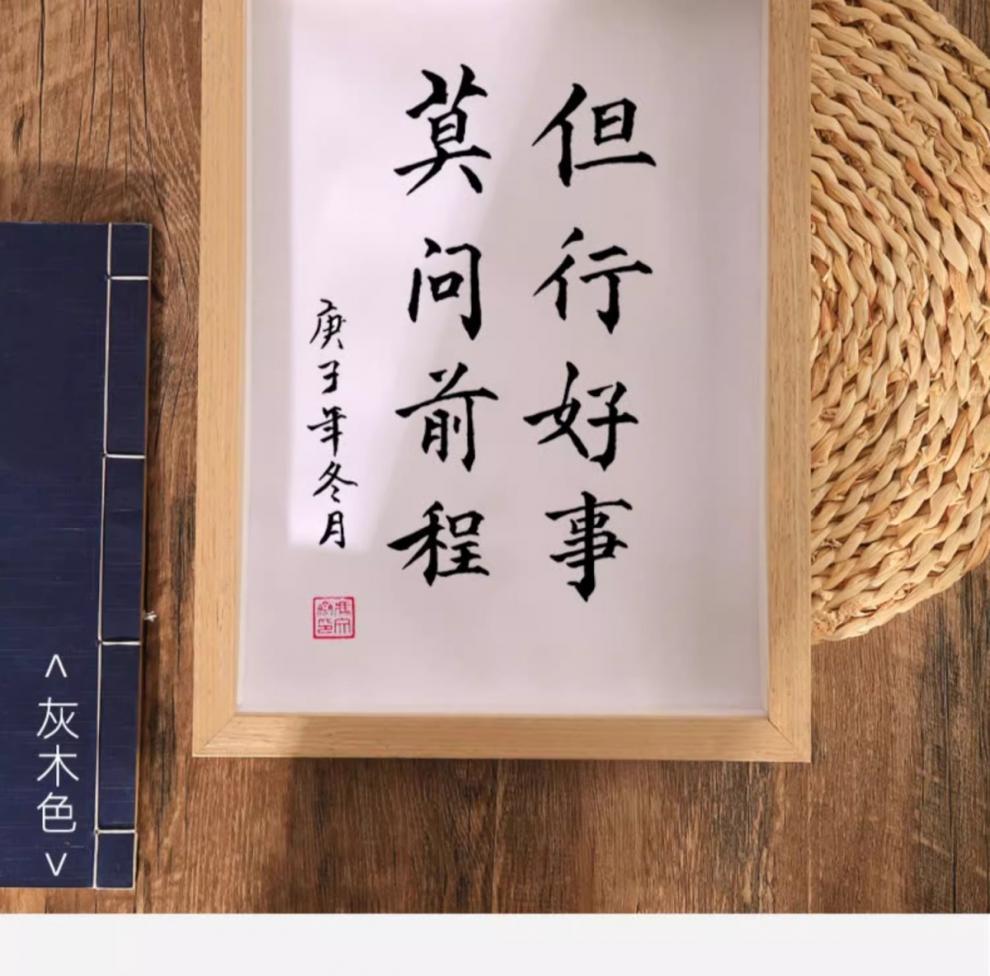 但行好事
莫问前程
庚子年冬月
<灰木色>